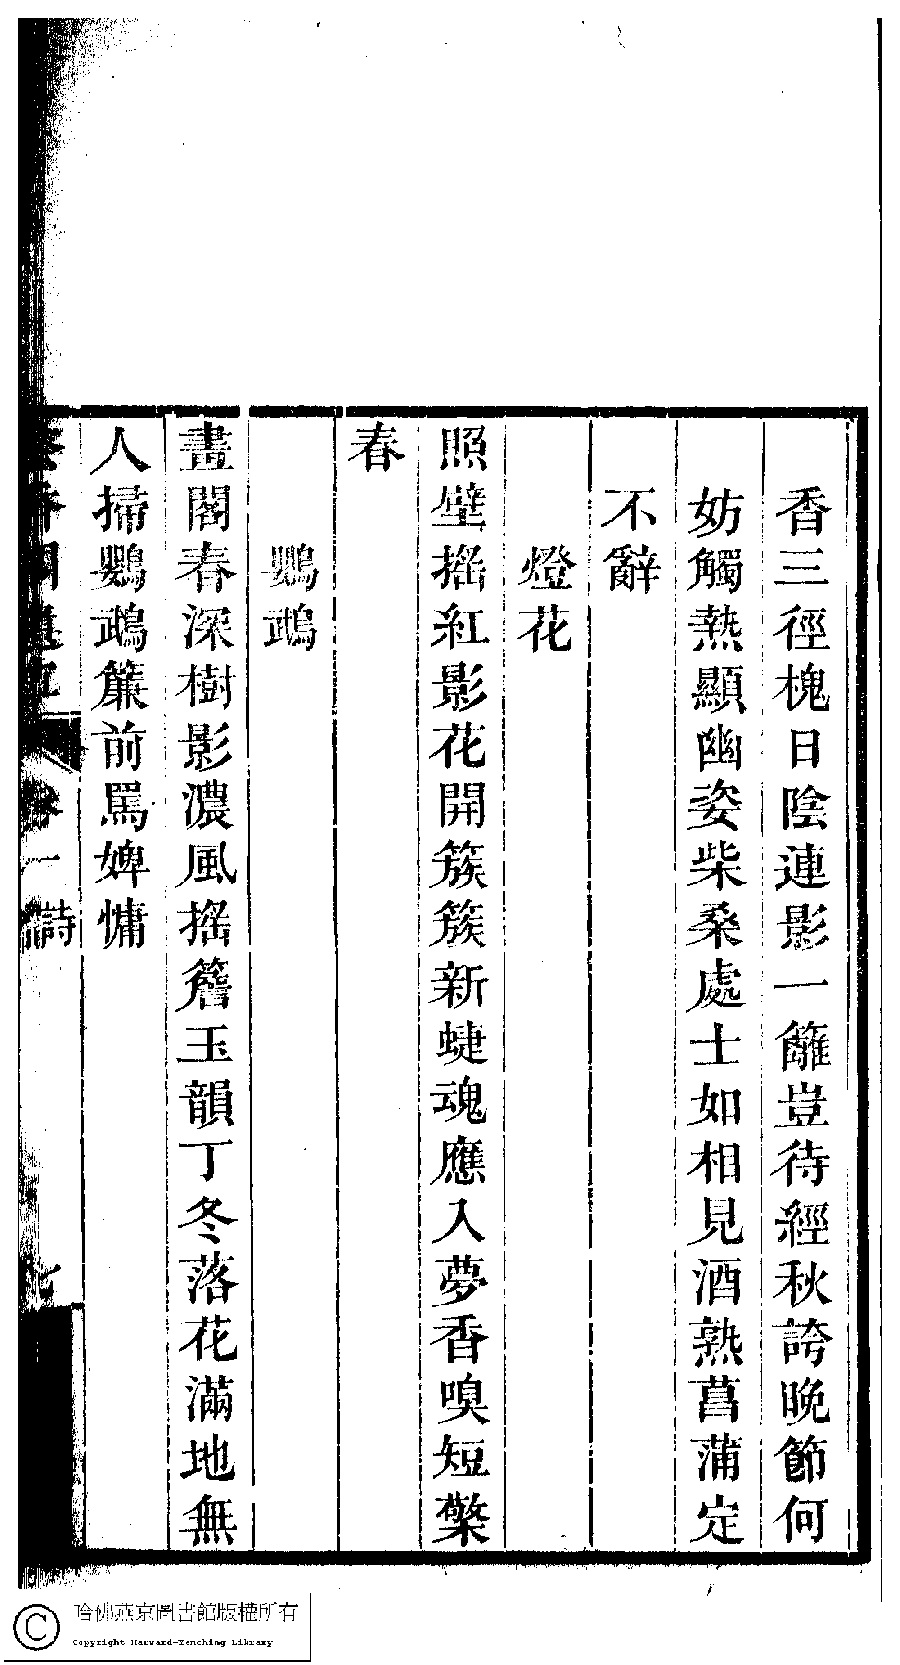 香三徑槐日陰連影一籬豈待經秋誇晚節何
妨觸熱顯幽姿柴桑處士如相見酒熟菖蒲定
不辭
燈花
照壁搖紅影花開簇簇新蜨魂應入夢香嗅短檠
春
鸚鵡
畫閣春深樹影濃風搖簷玉韻丁冬落花滿地無
人掃鸚鵡簾前罵婢慵
卷一
詩
哈佛燕京圖書館版權所有
Copyright Harvard-Yenching Library